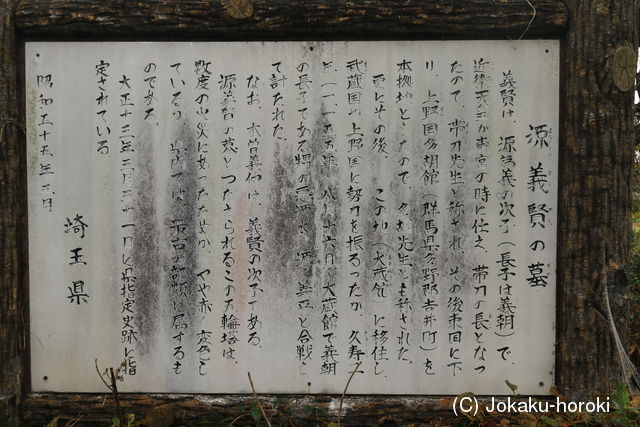 源義賢の墓
義賢は、源為義の次子（長子は義朝）で、
近衛天皇が東宮の時に仕え、帯刀の長となつ
たので、帯刀先生と称され、その後東国に下
り、上野国多胡館（群馬県多野郡吉井町）を
本拠地としたので、多胡先生とも称された。
更にその後、この地（大蔵館）に移住し、
武蔵国、上野国に勢力を振るったが、久寿
二年（一一五五年）八月十六日、大蔵館で義朝
の長子である悪源太 源 義平と合戦し
て討たれた。
なお、木曽義仲は、義賢の次子である。
源義賢の墓とつたえられるこの五輪塔は、
数度の火災にあったためか、やや赤 変色し
ているが、県内では、最古の部類に属するも
のである。
大正十三年三月三十一日に県指定史跡に指
定されている
昭和五十五年三月
埼玉県
(C) Jokaku-horoki